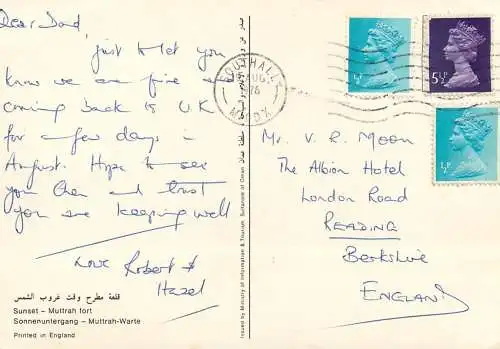 Dear David,
just to let you
know we are fine and
coming back to U.K
for a few days in
August. Hope to see
you then and trust
you are keeping well
Love Robert &
Hazel
قلعة مطرح وقت غروب الشمس
Sunset – Muttrah fort
Sonnenuntergang – Muttrah-Warte
Printed in England
Issued by Ministry of Information & Tourism, Sultanate of Oman
SOUTHALL
AUG
76
MIDDX
½P
5½P
½P
Mr. V. R. Moon
The Albion Hotel
London Road
READING
Berkshire
ENGLAND